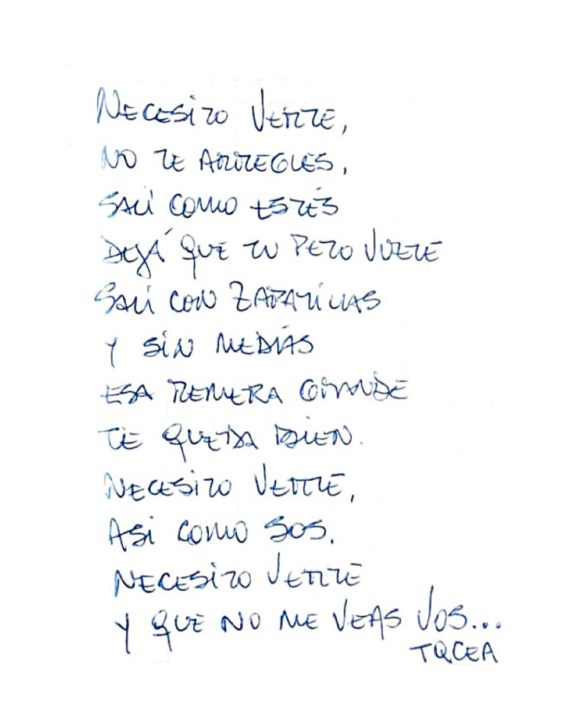 NECESITO VERTE,
NO TE ARREGLES,
SALÍ COMO ESTÉS
DEJÁ QUE TU PELO VUELE
SALÍ CON ZAPATILLAS
Y SIN MEDIAS
ESA REMERA GRANDE
TE QUEDA BIEN.
NECESITO VERTE,
ASI COMO SOS.
NECESITO VERTE
Y QUE NO ME VEAS VOS...
TQCEA